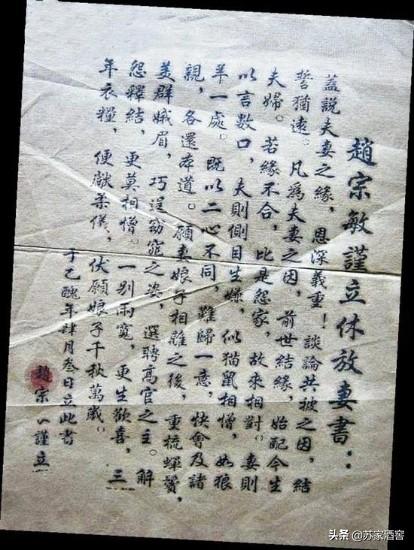 趙宗敏謹立休放妻書：
蓋説夫妻之緣，恩深義重！談論共被之因，結
誓猶遠。凡為夫妻之因，前世結緣，始配今生
夫婦。若緣不合，比是怨家，故來相對。妻則
以言數口，夫則側目生嫌，似猫鼠相憎，如狼
羊一處。既以二心不同，難歸一意，快會及諸
親，各還本道。願妻娘子相離之後，重梳蟬鬢，
美群娥眉，巧逞窈窕之姿，選聘高官之主。解
怨釋結，更莫相憎。一別兩寬，更生歡喜，三
年衣糧，便獻柔儀，伏願娘子千秋萬歲。
于乙醜年肆月叁日立此書
趙宗謹立
头条 @苏家酒窖